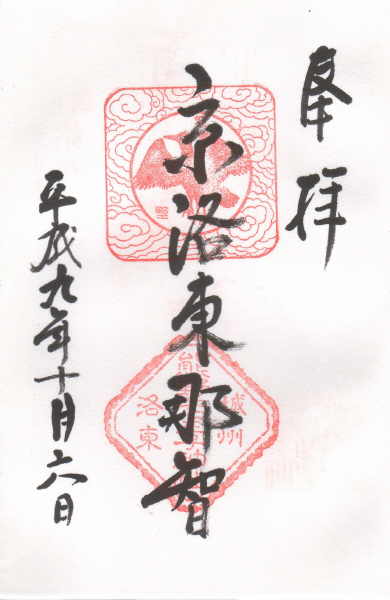 奉拝
京洛東那智
平成九年十月六日
城州
熊
洛東